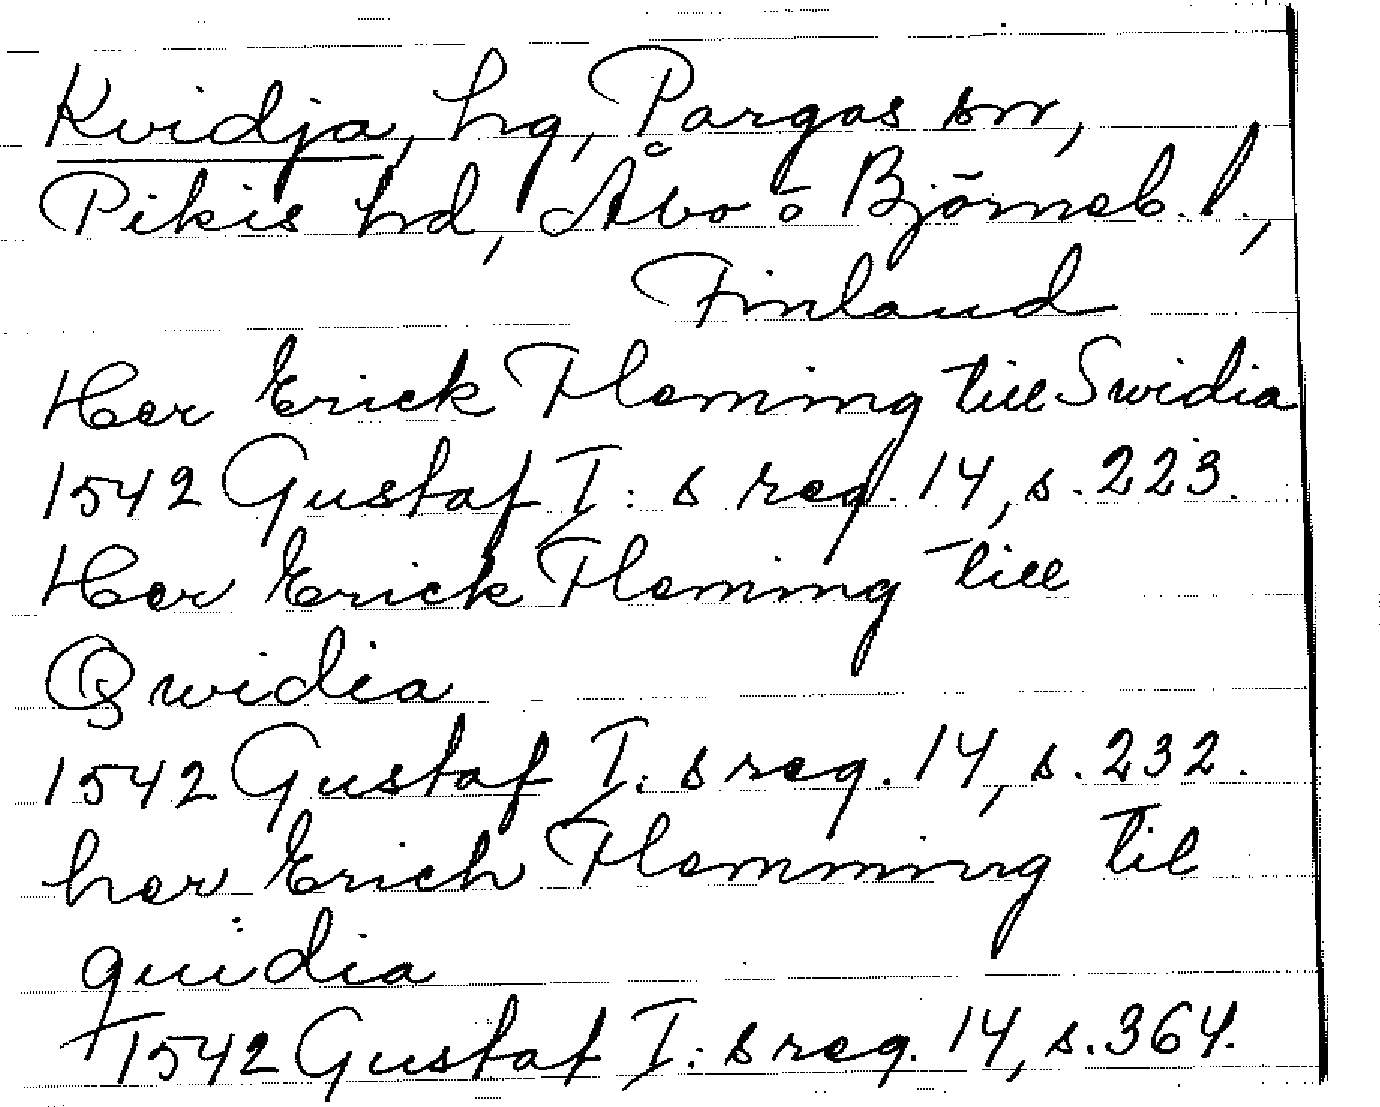 Kvidja, hg, Pargas sn,
Pikis hd, Åbo o Björneb. l.,
Finland
Her Erick Fleming till Swidia
1542 Gustaf I: s reg. 14, s. 223.
Her Erick Fleming till
Qwidia
1542 Gustaf I: s reg. 14, s. 232.
her Erich Flemming til
quidia
1542 Gustaf I: s reg. 14, s. 364.